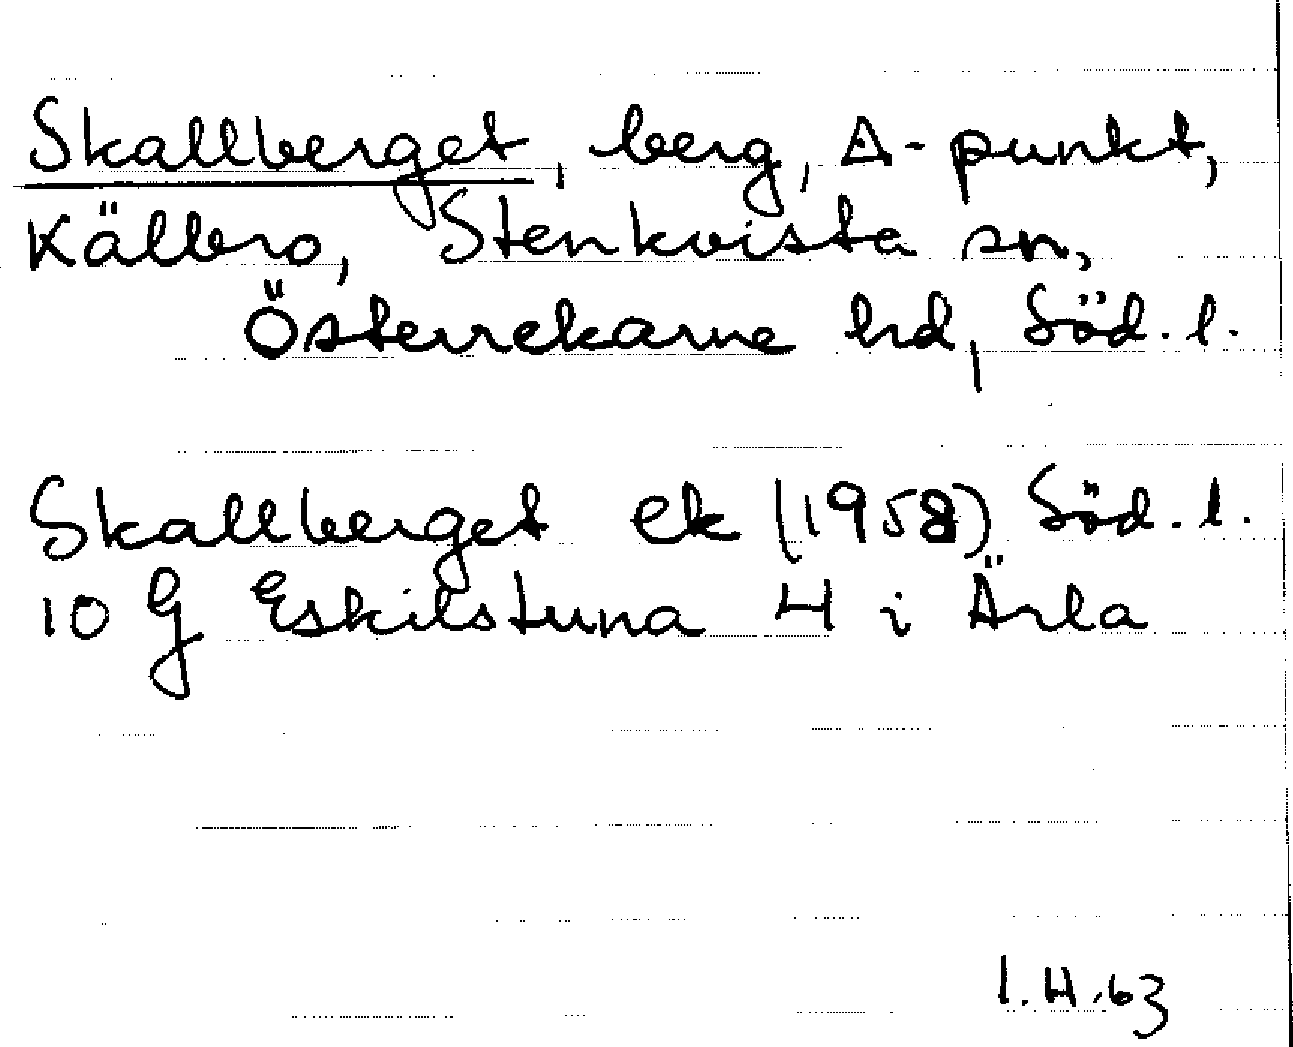 Skallberget, berg, Δ-punkt,
Källbro, Stenkvista sn,
Österrekarne hd, Söd. l.
Skallberget ek (1958) Söd. l.
10 G Eskilstuna 4 i Ärla
I. H. 63